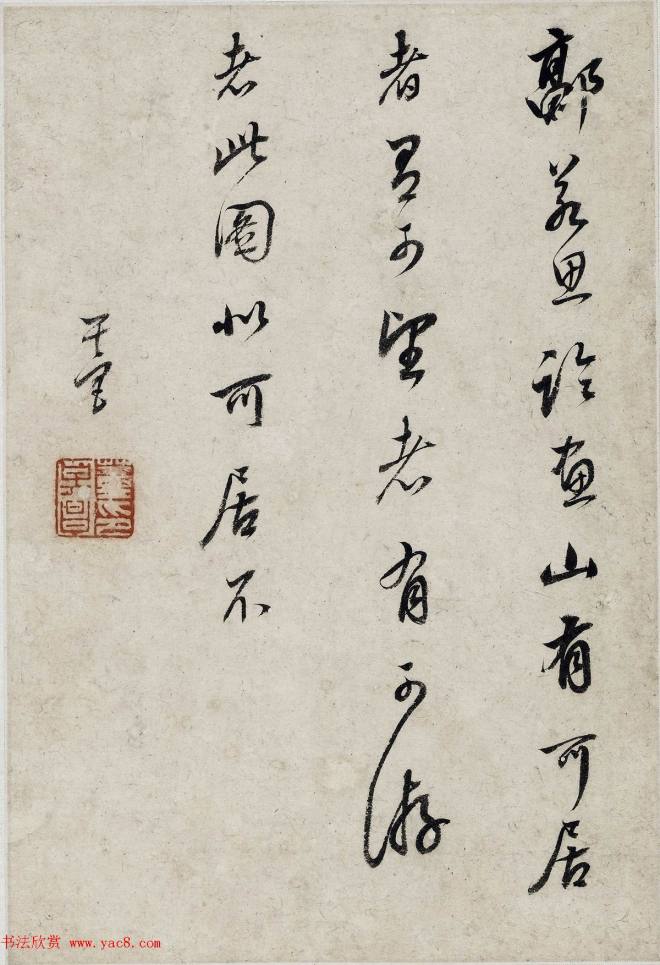 郭若思論畫山有可居
者有可望者有可游
者此圖似可居不
玄宰
书法欣赏 www.yac8.com